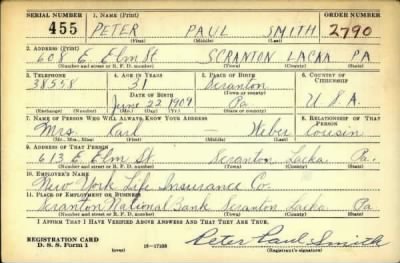 SERIAL NUMBER 1. NAME (Print) ORDER NUMBER
455 PETER PAUL SMITH 2790
(First) (Middle) (Last)
2. ADDRESS (Print)
608 E Elm St SCRANTON LACKA PA
(Number and street or R. F. D. number) (Town) (County) (State)
3. TELEPHONE 4. AGE IN YEARS 5. PLACE OF BIRTH 6. COUNTRY OF CITIZENSHIP
38558 31 Scranton
DATE OF BIRTH (Town or county)
June 22 1909 Pa U.S.A.
(Exchange) (No.) (Mo.) (Day) (Yr.) (State or country)
7. NAME OF PERSON WHO WILL ALWAYS KNOW YOUR ADDRESS 8. RELATIONSHIP OF THAT PERSON
Mrs. Karl — Weber Cousin
(Mr., Mrs., Miss) (First) (Middle) (Last)
9. ADDRESS OF THAT PERSON
613 E Elm St. Scranton Lacka. Pa.
(Number and street or R. F. D. number) (Town) (County) (State)
10. EMPLOYER'S NAME
New York Life Insurance Co.
11. PLACE OF EMPLOYMENT OR BUSINESS
Scranton National Bank Scranton Lacka Pa
(Number and street or R. F. D. number) (Town) (County) (State)
I AFFIRM THAT I HAVE VERIFIED ABOVE ANSWERS AND THAT THEY ARE TRUE.
REGISTRATION CARD
D. S. S. Form 1 (over) 16—17105 Peter Paul Smith
(Registrant's signature)